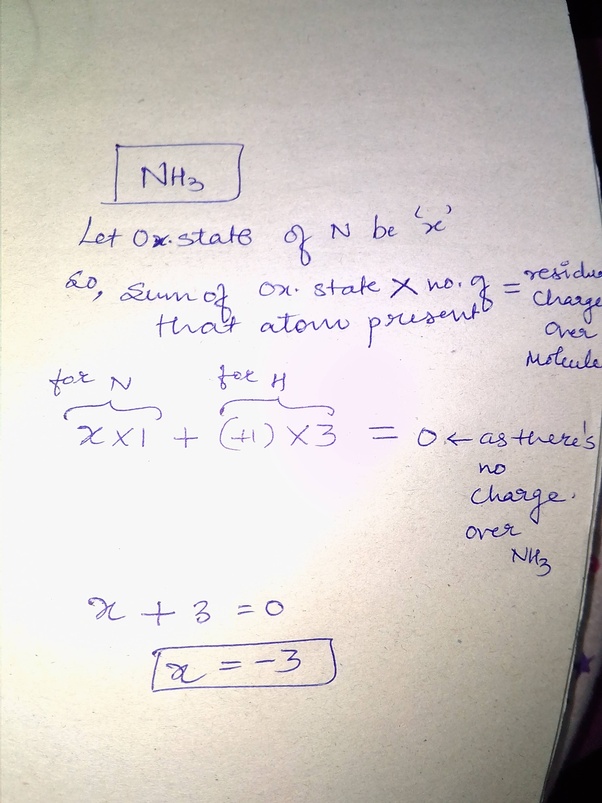 NH3
Let Ox. state of N be 'x'
So, Sum of ox. state × no. of = residu
that atom present charge
over
Molecule
for N for H
x×1 + (+1)×3 = 0 ← as there's
no
charge.
over
NH3
x + 3 = 0
x = -3